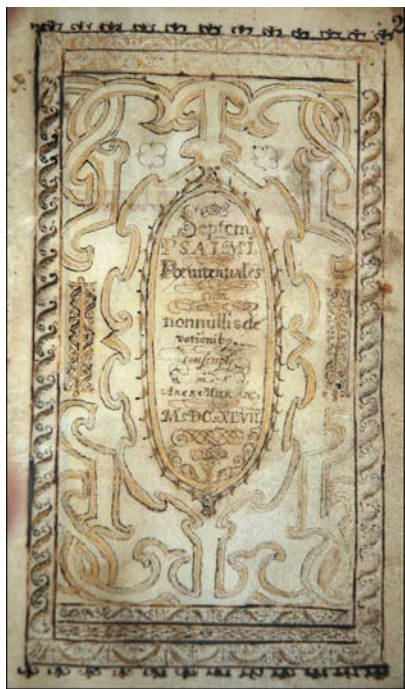 2
Septem
PSALMI
Pœnitentiales
cum
nonnullis de
votionibꝰ
conscripti
M.DC.XLVII.